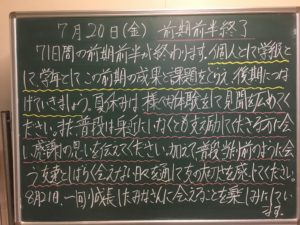 7月20日(金) 前期前半終了
71日間の前期前半が終わります。個人として学級と
して、学年としてこの前期の成果と課題をとらえ、後期につな
げていきましょう。夏休みは様々な体験をして見聞を広めてく
ださい。また普段は身近にいなくとも支え励ましてくださる方に会
い、感謝の思いを伝えてください。加えて普段当たり前のように会
う友達としばらく会えない日々を通して友の大切さを感じてください。
8月21日、一回り成長したみなさんに会えることを楽しみにしてい
ます。